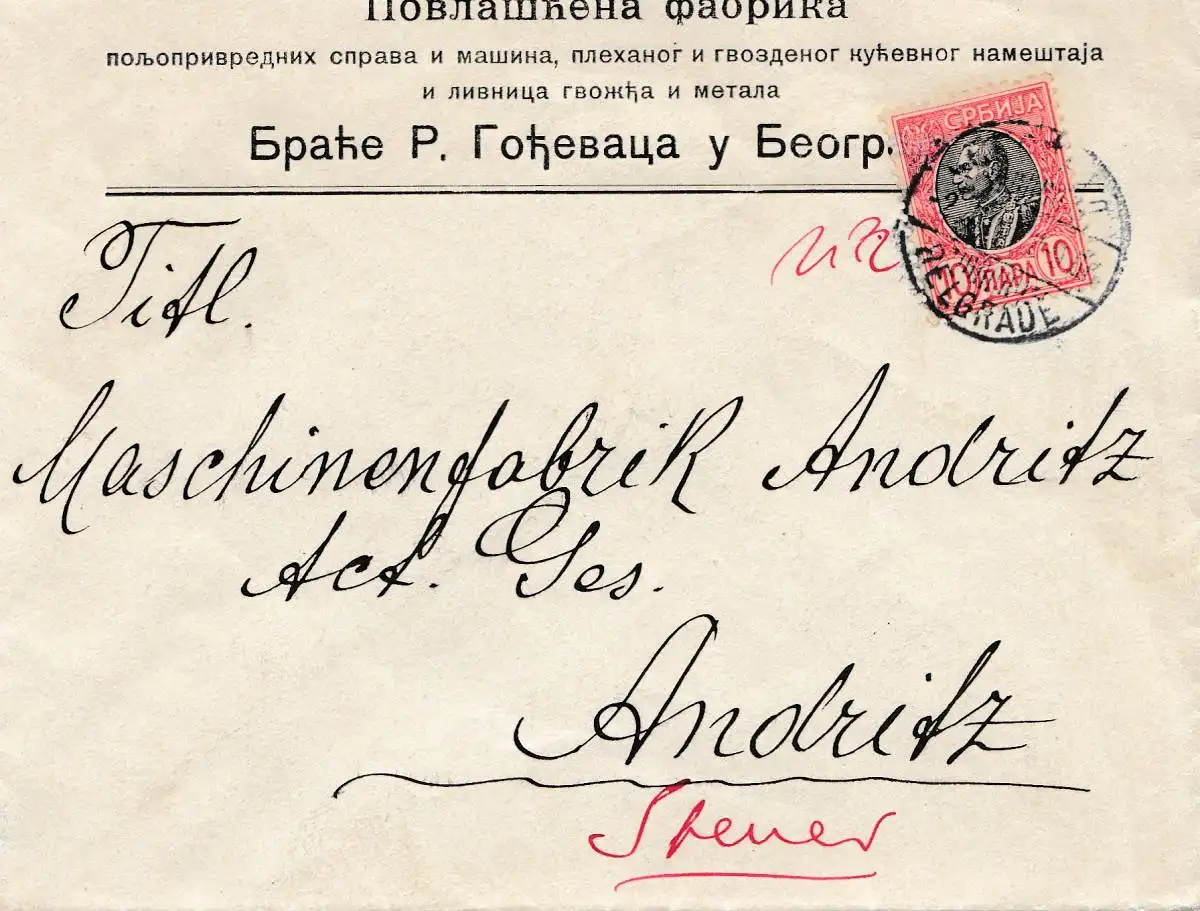 Повлашћена фабрика
пољопривредних справа и машина, плеханог и гвозденог кућевног намештаја
и ливница гвожђа и метала
Браће Р. Гођеваца у Беогр
СРБИЈА
10 ПАРА 10
BELGRADE
Titl.
Maschinenfabrik Andritz
Act. Ges.
Andritz